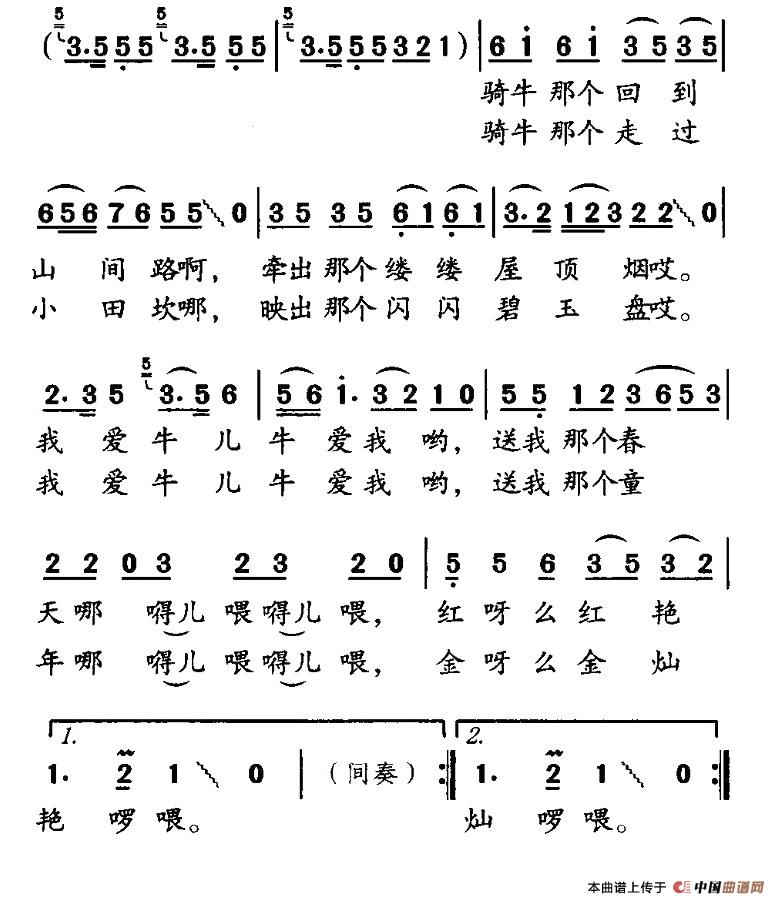 5 5 5
( 3. 5 5 5 3. 5 5 5 | 3. 5 5 5 3 2 1 ) | 6 i 6 i 3 5 3 5 |
骑牛 那个 回 到
骑牛 那个 走 过
6 5 6 7 6 5 5 0 | 3 5 3 5 6 1 6 1 | 3. 2 1 2 3 2 2 0 |
山 间 路啊, 牵出 那个 缕 缕 屋 顶 烟哎。
小 田 坎哪, 映出 那个 闪 闪 碧 玉 盘哎。
5
2. 3 5 3. 5 6 | 5 6 i. 3 2 1 0 | 5 5 1 2 3 6 5 3 |
我 爱 牛 儿 牛 爱 我 哟, 送我 那个春
我 爱 牛 儿 牛 爱 我 哟, 送我 那个童
2 2 0 3 2 3 2 0 | 5 5 6 3 5 3 2 |
天哪 嘚儿 喂嘚儿 喂, 红 呀 么 红 艳
年哪 嘚儿 喂嘚儿 喂, 金 呀 么 金 灿
1. 2.
1. 2 1 0 | (间奏) :‖ 1. 2 1 0 :‖
艳 啰 喂。 灿 啰 喂。
本曲谱上传于 中国曲谱网